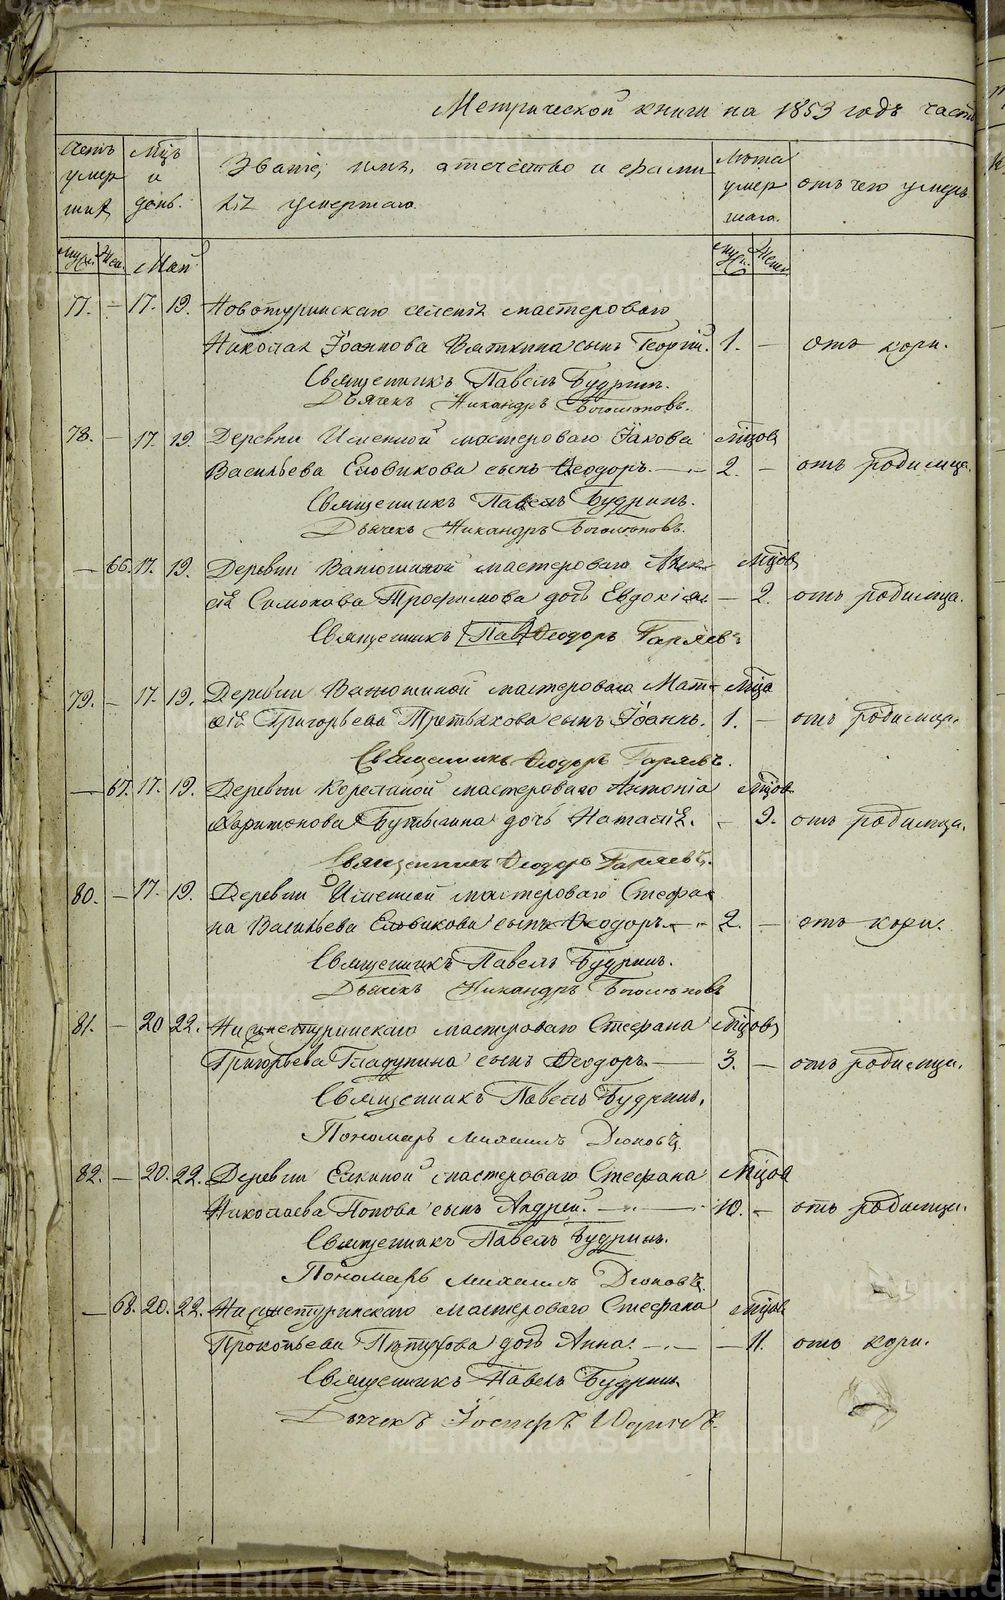 Метрической книги на 1853 годъ часть
Счетъ умершихъ
Мцъ и день.
Званіе, имя, отечество и фамилія умершаго
Лѣта умершаго.
отъ чего умеръ
муж. Жен. Май муж. Жен.
77. — 17. 19. Новотуринскаго селенія мастероваго
Николая Іоаннова Вяткина сынъ Георгій. 1. — отъ кори.
Священникъ Павелъ Будринъ.
Дьячекъ Никандръ Богомоловъ.
78. — 17. 19. Деревни Именной мастероваго Іакова мцов
Васильева Еловикова сынъ Ѳеодоръ. — 2. — отъ родимца.
Священникъ Павелъ Будринъ.
Дьячекъ Никандръ Богомоловъ.
— 66. 17. 19. Деревни Ванюшиной мастероваго Алек- мцов
сія Самокова Трофимова дочь Евдокія — 2. отъ родимца.
Священникъ [Пав] Ѳеодоръ Гаряевъ
79. — 17. 19. Деревни Ванюшиной мастероваго Мат- мца
ѳія Григорьева Третьякова сынъ Іоаннъ. 1. — отъ родимца.
Священникъ Ѳеодоръ Гаряевъ.
— 67. 17. 19. Деревни Корелиной мастероваго Антонія мцов
Харитонова Бутыгина дочь Наталія. — 9. отъ родимца.
Священникъ Ѳеодоръ Гаряевъ.
80. — 17. 19. Деревни Именной мастероваго Стефа-
на Васильева Еловикова сынъ Ѳеодоръ. — 2. — отъ кори.
Священникъ Павелъ Будринъ.
Дьячекъ Никандръ Богомоловъ
81. — 20 22. Нижнетуринскаго мастероваго Стефана мцов
Григорьева Гладунина сынъ Ѳеодоръ. — 3. — отъ родимца.
Священникъ Павелъ Будринъ.
Пономарь Михаилъ
82. — 20. 22. Деревни Елкиной мастероваго Стефана мцов
Николаева Попова сынъ Андрей. — 10. — отъ родимца.
Священникъ Павелъ Будринъ.
Пономарь Михаилъ
— 68. 20. 22. Нижнетуринскаго мастероваго Стефана мцов
Прокопьева Пѣтухова дочь Анна. — — 11. отъ кори.
Священникъ Павелъ Будринъ
Дьячекъ
METRIKI.GASO-URAL.RU